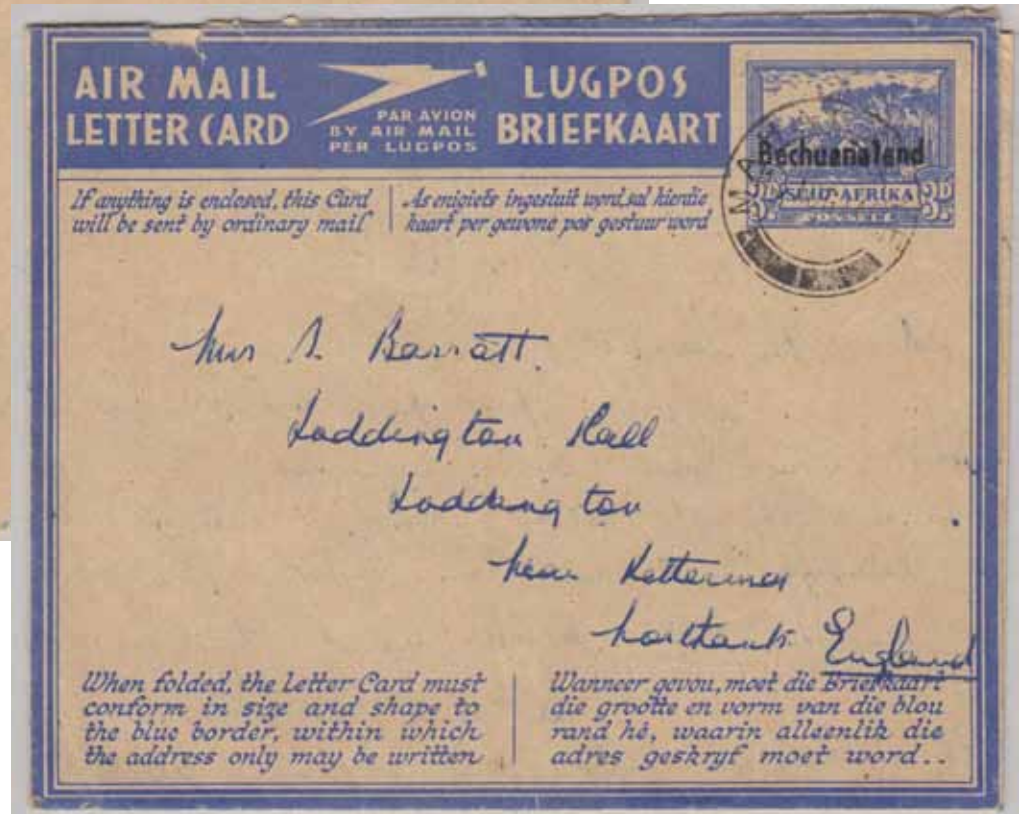 AIR MAIL
LETTER CARD
PAR AVION
BY AIR MAIL
PER LUGPOS
LUGPOS
BRIEFKAART
Bechuanaland
SUID-AFRIKA
3D. 3D.
POSSEEL
If anything is enclosed, this Card
will be sent by ordinary mail
As enigiets ingesluit word, sal hierdie
kaart per gewone pos gestuur word
Mrs S. Barratt.
Loddington Hall
Loddington
Near Kettering
Northants. England
When folded, the Letter Card must
conform in size and shape to
the blue border, within which
the address only may be written
Wanneer gevou, moet die Briefkaart
die grootte en vorm van die blou
rand hê, waarin alleenlik die
adres geskryf moet word..